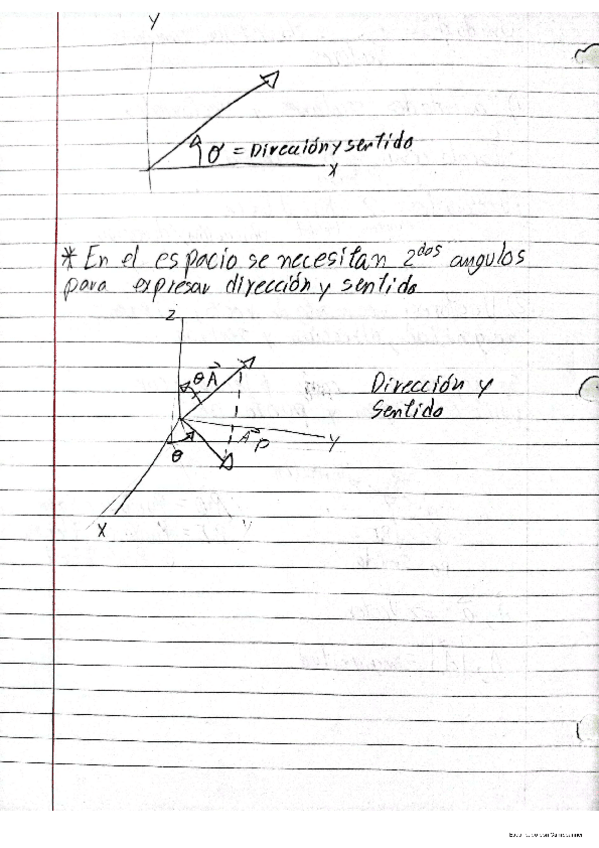 Y
θ = Dirección y sentido
X
* En el espacio se necesitan 2dos angulos
para expresar dirección y sentido
Z
θ A⃗
Dirección y
Sentido
Y
A⃗p
θ
X